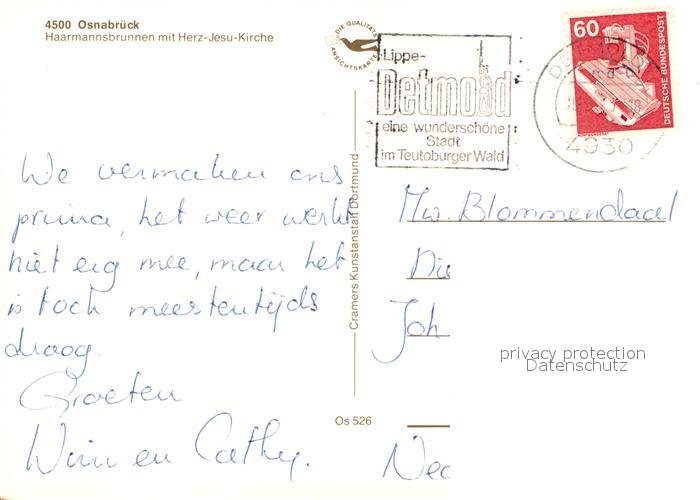 4500 Osnabrück
Haarmannsbrunnen mit Herz-Jesu-Kirche
DIE QUALITÄTS
ANSICHTSKARTE
Lippe-
Detmold
eine wunderschöne
Stadt
im Teutoburger Wald
60
DEUTSCHE BUNDESPOST
4930
We vermaken ons
prima, het weer werkt
niet erg mee, maar het
is toch meestentijds
droog.
Groeten
Wim en Cathy.
Cramers Kunstanstalt Dortmund
Os 526
Mw. Blommendaal
Joh
privacy protection
Datenschutz